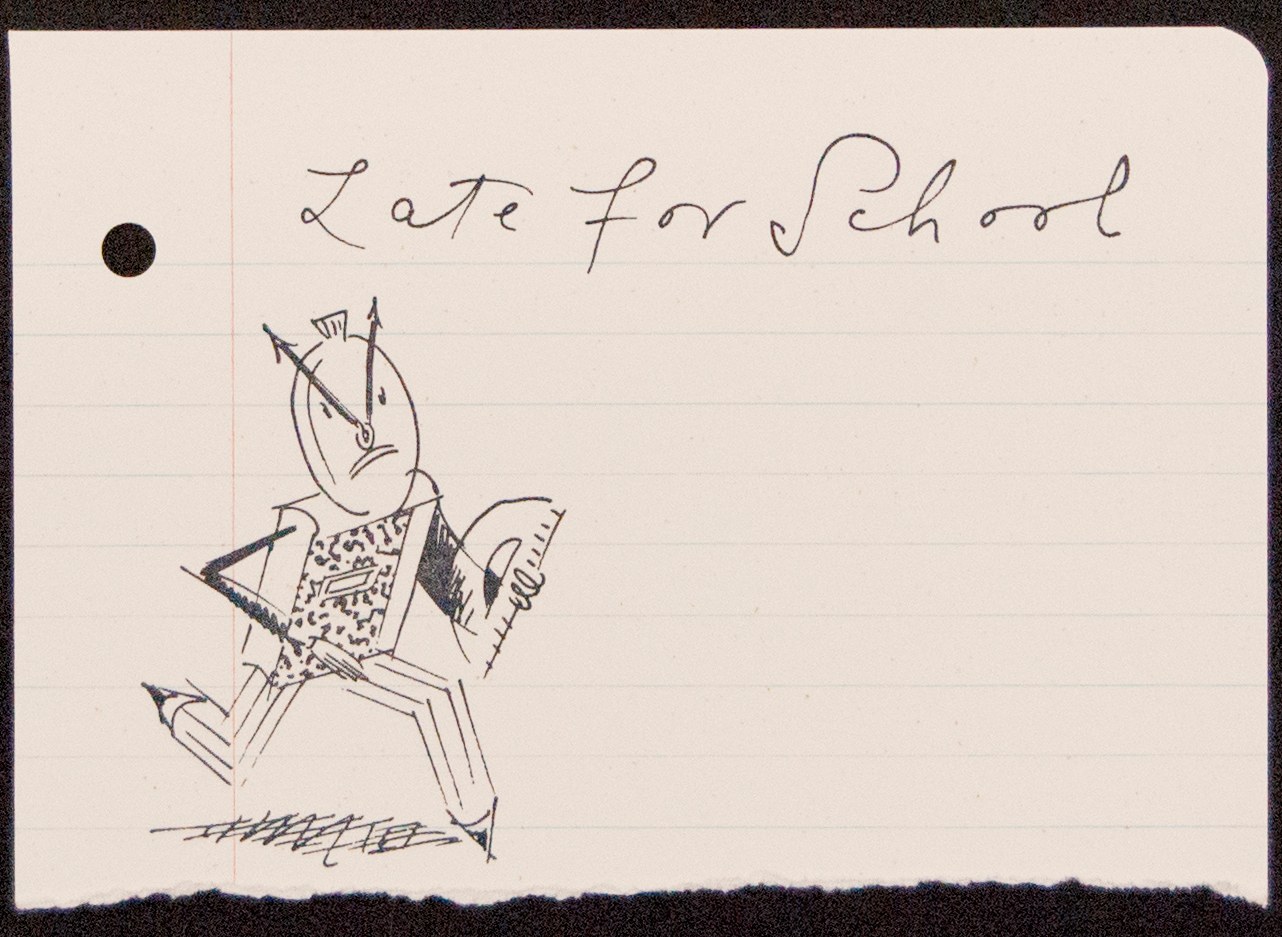 Late for School